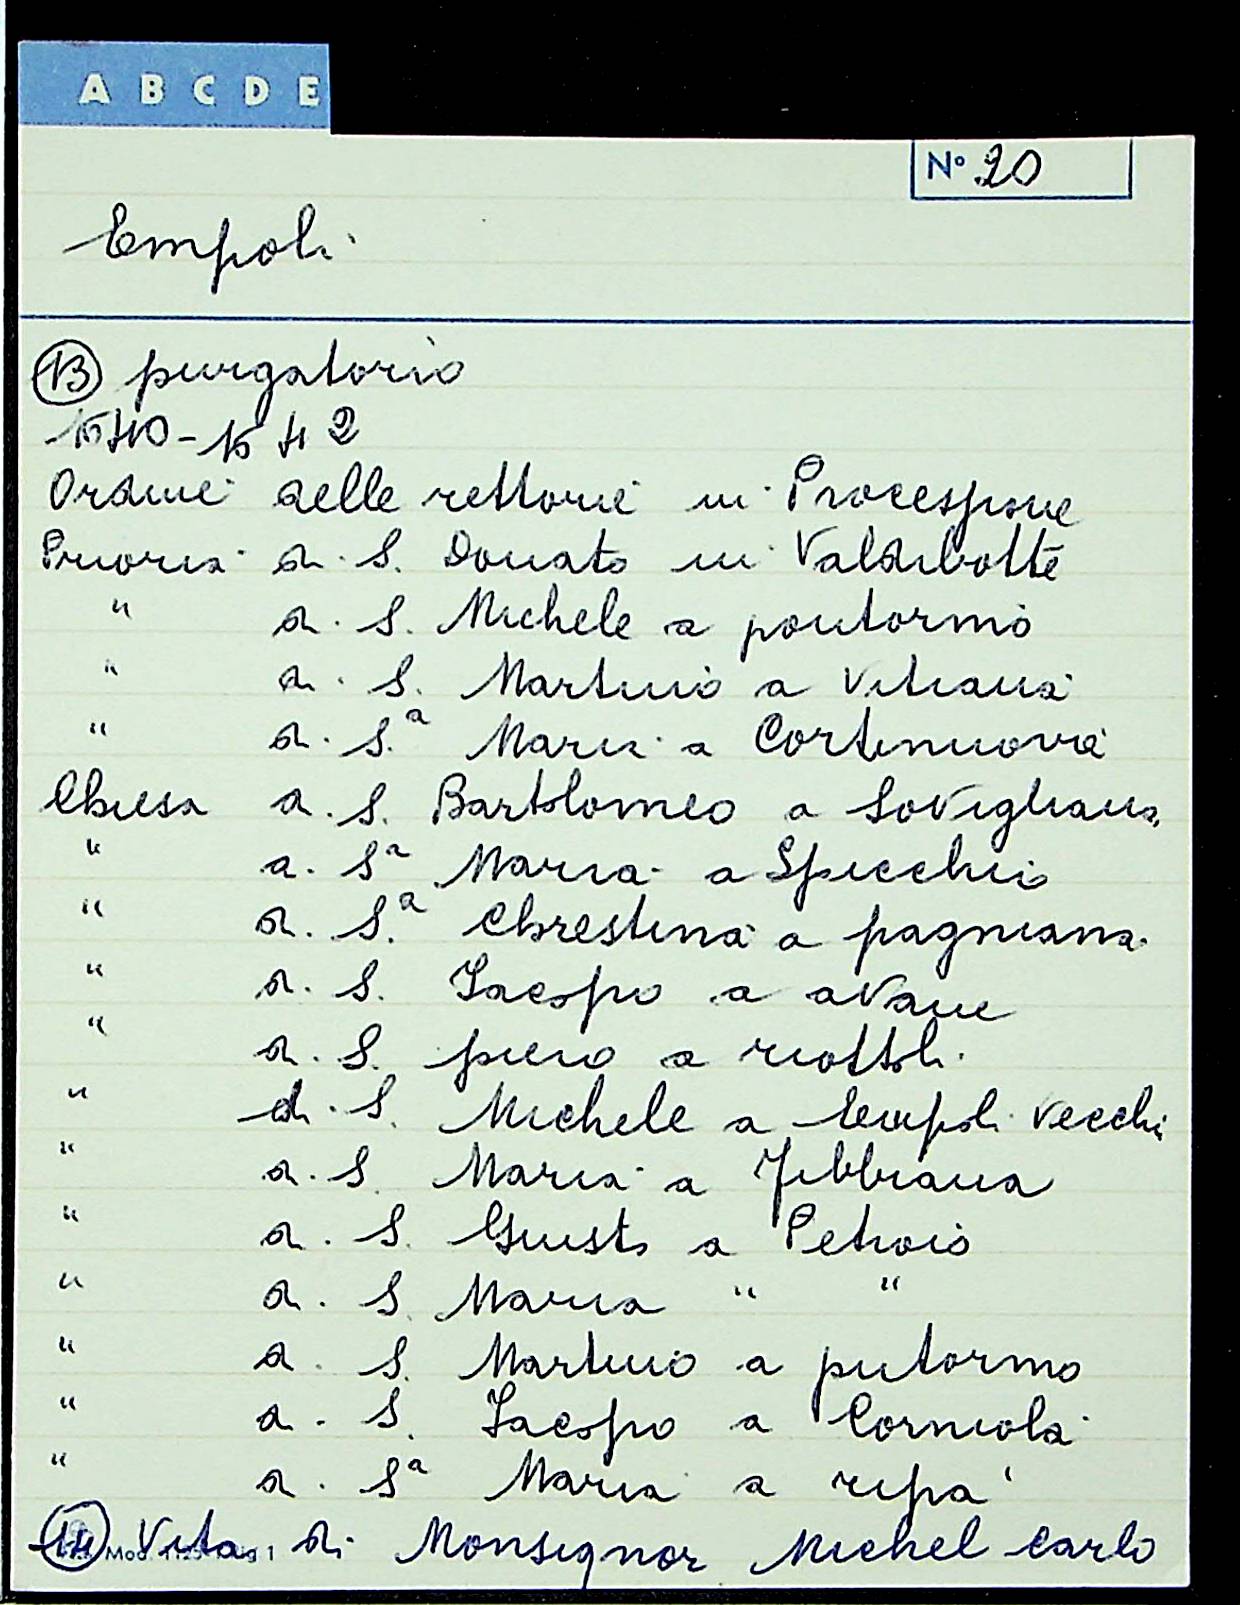 A B C D E
N° 20
Empoli
13 purgatorio
1540-1542
Ordine delle rettorie in Processione
Prioria di S. Donato in Valdibotte
" di S. Michele a pontormo
" di S. Martino a Vitiana
" di S.a Maria a Cortenuova
Chiesa di S. Bartolomeo a Sovigliana
" di Sa Maria a Spicchio
" di S.a Chrestina a pagniana
" di S. Iacopo a avane
" di S. piero a riottoli
" di S. Michele a Empoli Vecchi
" di S. Maria a Fibbiana
" di S. Giusto a Petroio
" di S. Maria " "
" di S. Martino a putormo
" di S. Iacopo a Corniola
" di Sa Maria a ripa
14 Vita di Monsignor Michel Carlo